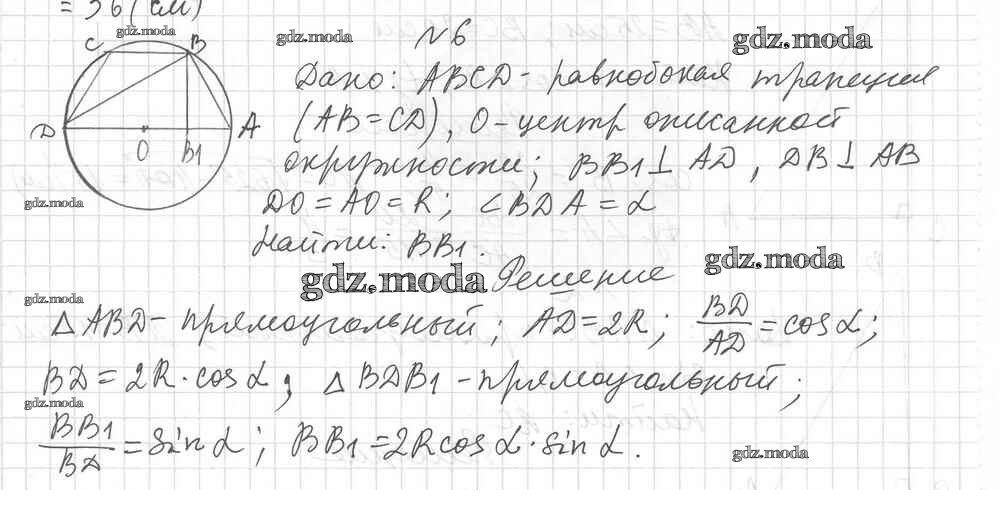 = 36 (см)
gdz.moda
gdz.moda
gdz.moda
№6
C B
D O B1 A
Дано: ABCD - равнобокая трапеция
(AB = CD), O - центр описанной
окружности; BB1 ⊥ AD, DB ⊥ AB
gdz.moda
DO = AO = R; ∠BDA = α
Найти: BB1.
gdz.moda
gdz.moda
Решение
gdz.moda
△ ABD - прямоугольный; AD = 2R; BD/AD = cos α;
BD = 2R · cos α; △ BDB1 - прямоугольный;
gdz.moda
BB1/BD = sin α; BB1 = 2R cos α · sin α.
gdz.moda